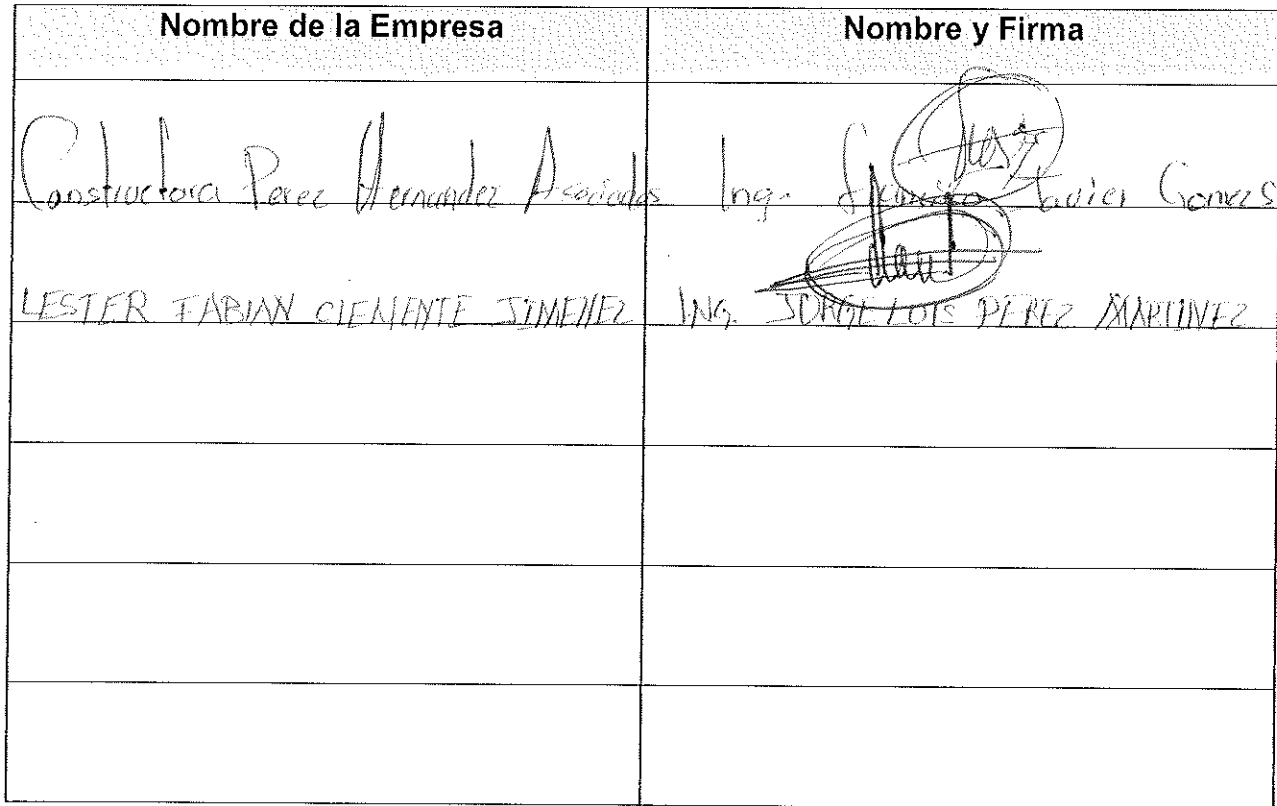 Nombre de la Empresa Nombre y Firma
Constructora Perez Hernandez Asociados Ing. Javier Gomez
LESTER FABIAN CLEMENTE JIMENEZ ING. JORGE LUIS PEREZ MARTINEZ